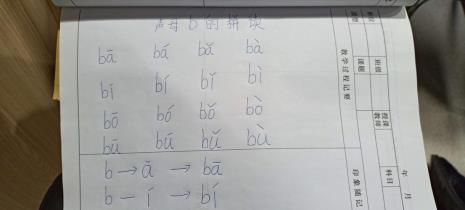 声母b的拼读
bā bá bǎ bà
bī bí bǐ bì
bō bó bǒ bò
bū bú bǔ bù
b→ā→bā
b—í→bí
教学过程记要
印象随记
课题
班级
授课教师
科目
年 月